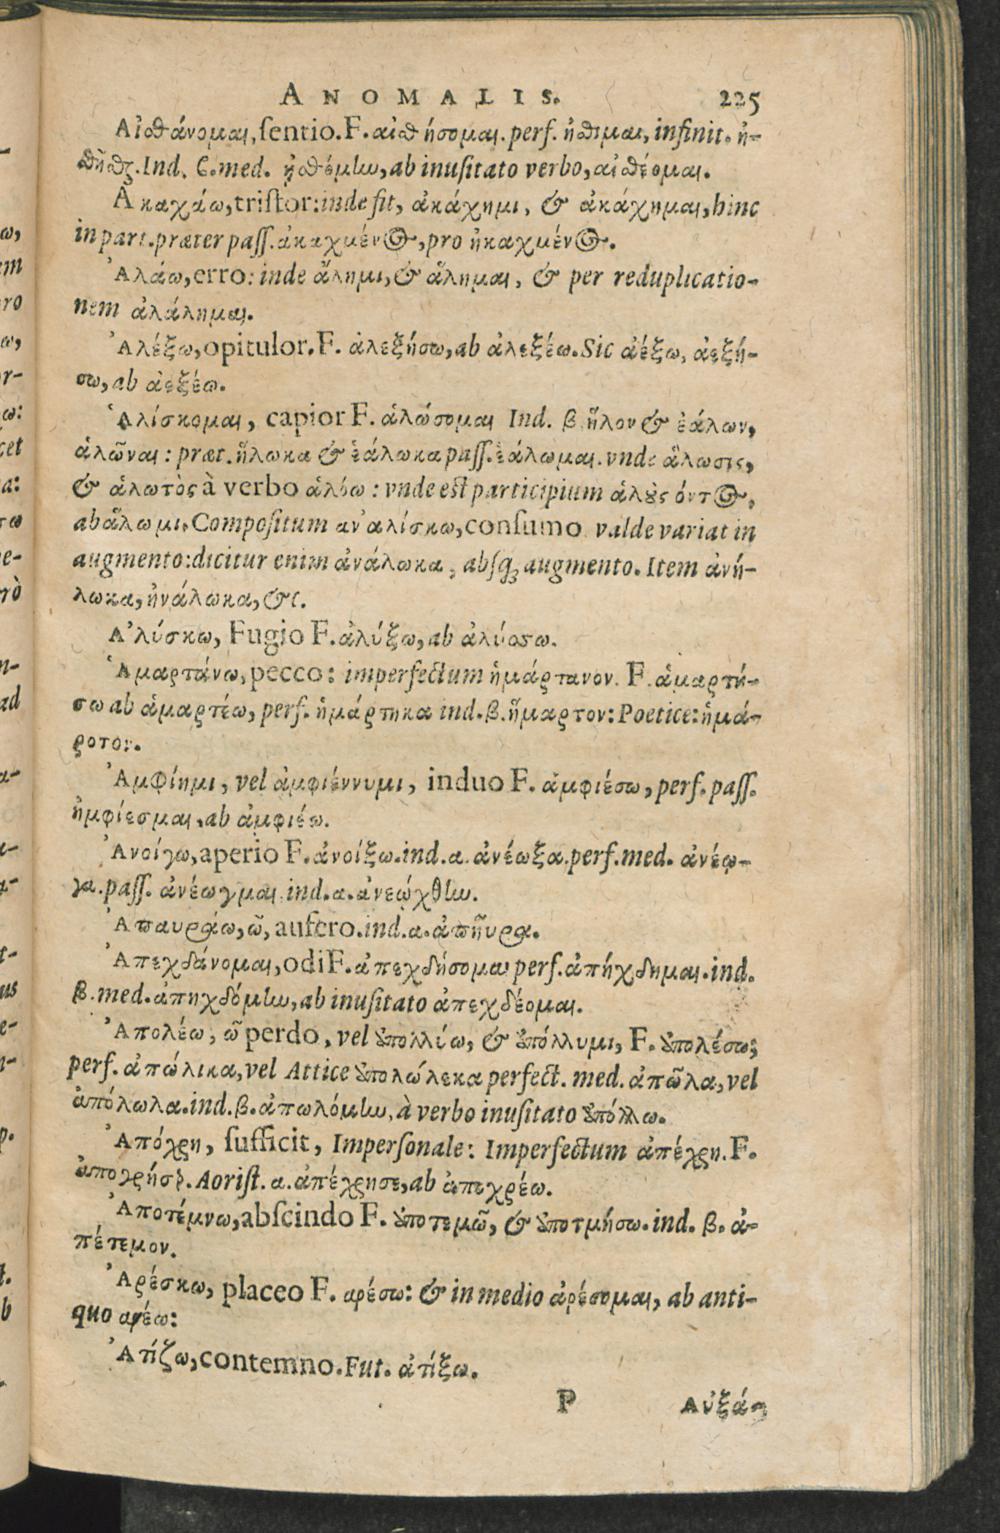 ANOMALIS. 225
Αἰσθάνομαι, sentio. F. αἰσθήσομαι. perf. ἤσθημαι, infinit. ἠ-
σθῆσθαι. Ind. β. med. ᾐσθόμην, ab inusitato verbo, αἰσθέομαι.
Ἀκαχάω, tristor: inde fit, ἀκάχημι, & ἀκάχημαι, hinc
in part. præter pass. ἀκαχμένος, pro ἠκαχμένος.
Ἀλάω, erro: inde ἄλημι, & ἄλημαι, & per reduplicatio-
nem ἀλάλημαι.
Ἀλέξω, opitulor. F. ἀλεξήσω, ab ἀλεξέω. Sic ἀέξω, ἀεξή-
σω, ab ἀεξέω.
Ἁλίσκομαι, capior F. ἁλώσομαι Ind. β. ἥλον & ἑάλων,
ἁλῶναι: præt. ἥλωκα & ἑάλωκα pass. ἑάλωμαι. vnde ἅλωσις,
& ἁλωτὸς à verbo ἁλόω: vnde est participium ἁλοὺς όντος,
ab ἅλωμι. Compositum αν'αλίσκω, consumo valde variat in
augmento: dicitur enim ἀνάλωκα, absq; augmento. Item ἀνή-
λωκα, ἠνάλωκα, &c.
Ἀλύσκω, Fugio F. ἀλύξω, ab ἀλύσσω.
Ἁμαρτάνω, pecco: imperfectum ἡμάρτανον. F. ἁμαρτή-
σω ab ἁμαρτέω, perf. ἡμάρτηκα ind. β. ἥμαρτον: Poetice: ἡμά-
ροτον.
Ἀμφίημι, vel ἀμφιέννυμι, induo F. ἀμφιέσω, perf. pass.
ἠμφίεσμαι, ab ἀμφιέω.
Ἀνοίγω, aperio F. ἀνοίξω. ind. α. ἀνέωξα. perf. med. ἀνέῳ-
γα. pass. ἀνέωγμαι. ind. α. ἀνεῴχθην.
Ἀπαυράω, ῶ, aufero. ind. α. ἀπηῦρα.
Ἀπεχθάνομαι, odi F. ἀπεχθήσομαι perf. ἀπήχθημαι. ind.
β. med. ἀπηχθόμην, ab inusitato ἀπεχθέομαι.
Ἀπολέω, ῶ perdo, vel ἀπολλύω, & ἀπόλλυμι, F. ἀπολέσω;
perf. ἀπώλικα, vel Attice ἀπολώλεκα perfect. med. ἀπῶλα, vel
ἀπόλωλα. ind. β. ἀπωλόμην, à verbo inusitato ἀπόλλω.
Ἀπόχρη, sufficit, Impersonale: Imperfectum ἀπέχρη. F.
ἀποχρήσει. Aorist. α. ἀπέχρησε, ab ἀποχρέω.
Ἀποτέμνω, abscindo F. ἀποτεμῶ, & ἀποτμήσω. ind. β. ἀ-
πέτεμον.
Ἀρέσκω, placeo F. αρέσω: & in medio ἀρέσομαι, ab anti-
quo αρέω:
Ἀτίζω, contemno. Fut. ἀτίξω.
P Αὐξά-